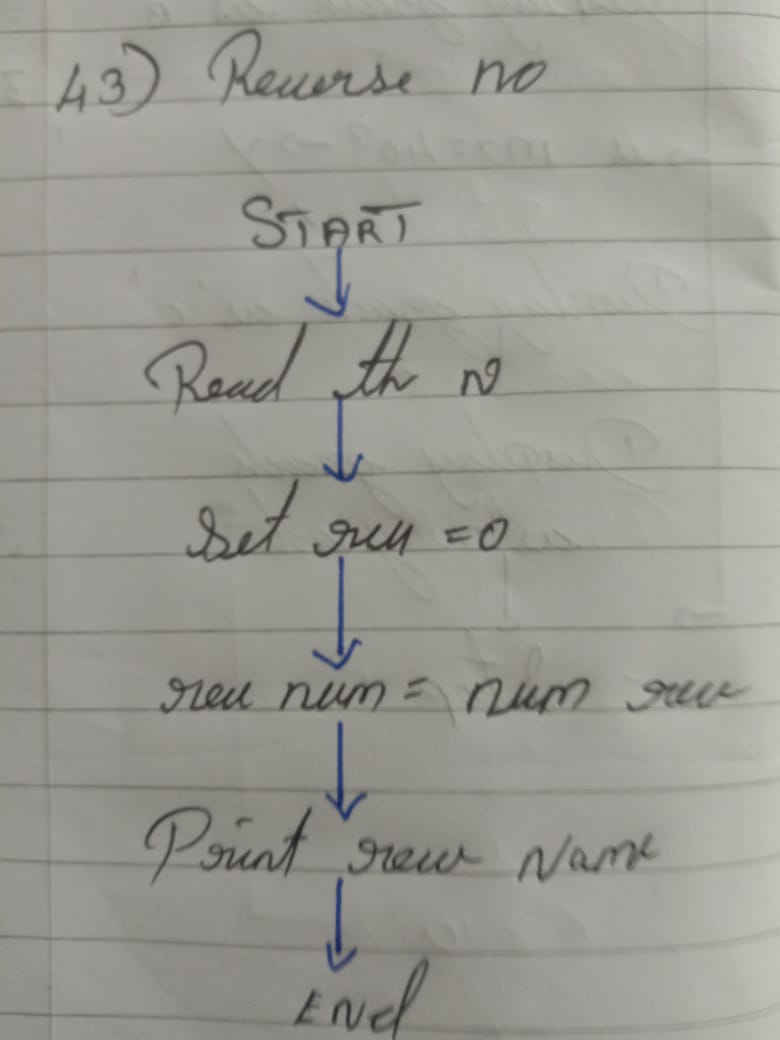 43) Reverse no
START
Read th N
Set rev = 0
rev num = num rev
Print rev Name
End